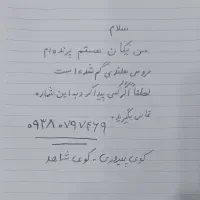 سلام
من نیکان هستم پرنده ام
عروس هلندی گم شده است
لطفا اگر کسی پیدا کرد به این شماره
تماس بگیرید.
۰۹۳۸۰۷۹۷۴۶۹
کوی پیروزی - کوی شاهد